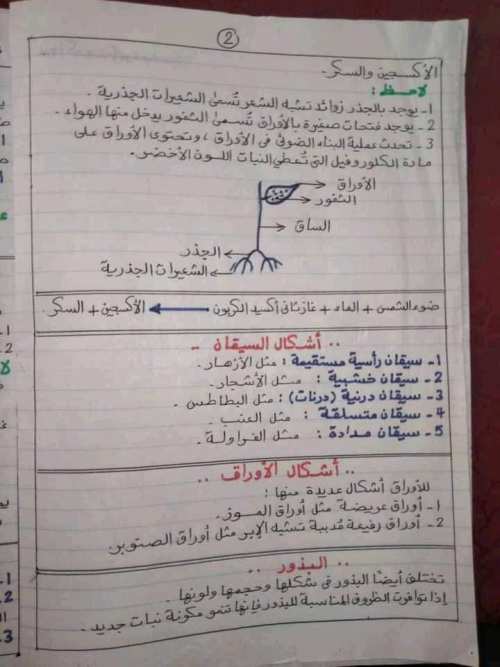 2
الأكسجين والسكر.
لاحظ:
1- يوجد بالجذر زوائد تشبه الشعر تُسمى الشعيرات الجذرية.
2- يوجد فتحات صغيرة بالأوراق تُسمى الثغور يدخل منها الهواء.
3- تحدث عملية البناء الضوئى فى الأوراق، وتحتوى الأوراق على
مادة الكلوروفيل التى تُعطي النبات اللون الأخضر.
الأوراق
الثغور
الساق
الجذر
الشعيرات الجذرية
ضوء الشمس + الماء + غاز ثانى أكسيد الكربون ← الأكسجين + السكر.
.. أشكال السيقان ..
1- سيقان رأسية مستقيمة: مثل الأزهار.
2- سيقان خشبية: مثل الأشجار.
3- سيقان درنية (درنات): مثل البطاطس.
4- سيقان متسلقة: مثل العنب.
5- سيقان مدادة: مثل الفراولة.
.. أشكال الأوراق ..
للأوراق أشكال عديدة منها:
1- أوراق عريضة مثل أوراق الموز.
2- أوراق رفيعة مُدببة تشبه الإبر مثل أوراق الصنوبر.
.. البذور ..
تختلف أيضًا البذور فى شكلها وحجمها ولونها.
إذا توافرت الظروف المناسبة للبذور فإنها تنمو مكونة نبات جديد.